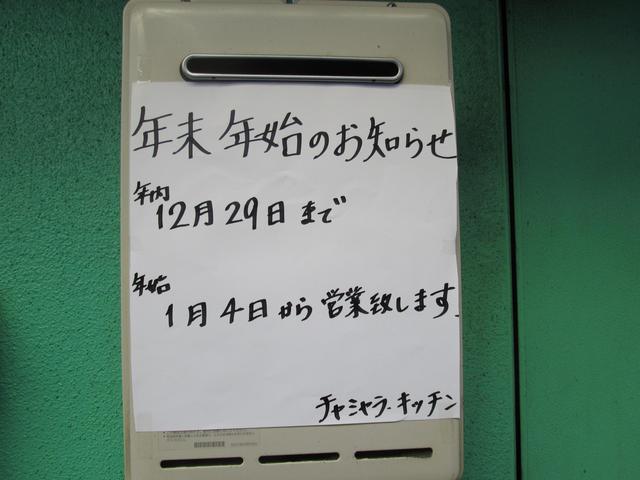 年末年始のお知らせ
年内
12月29日まで
年始
1月4日から営業致します.
チャミャラ・キッチン